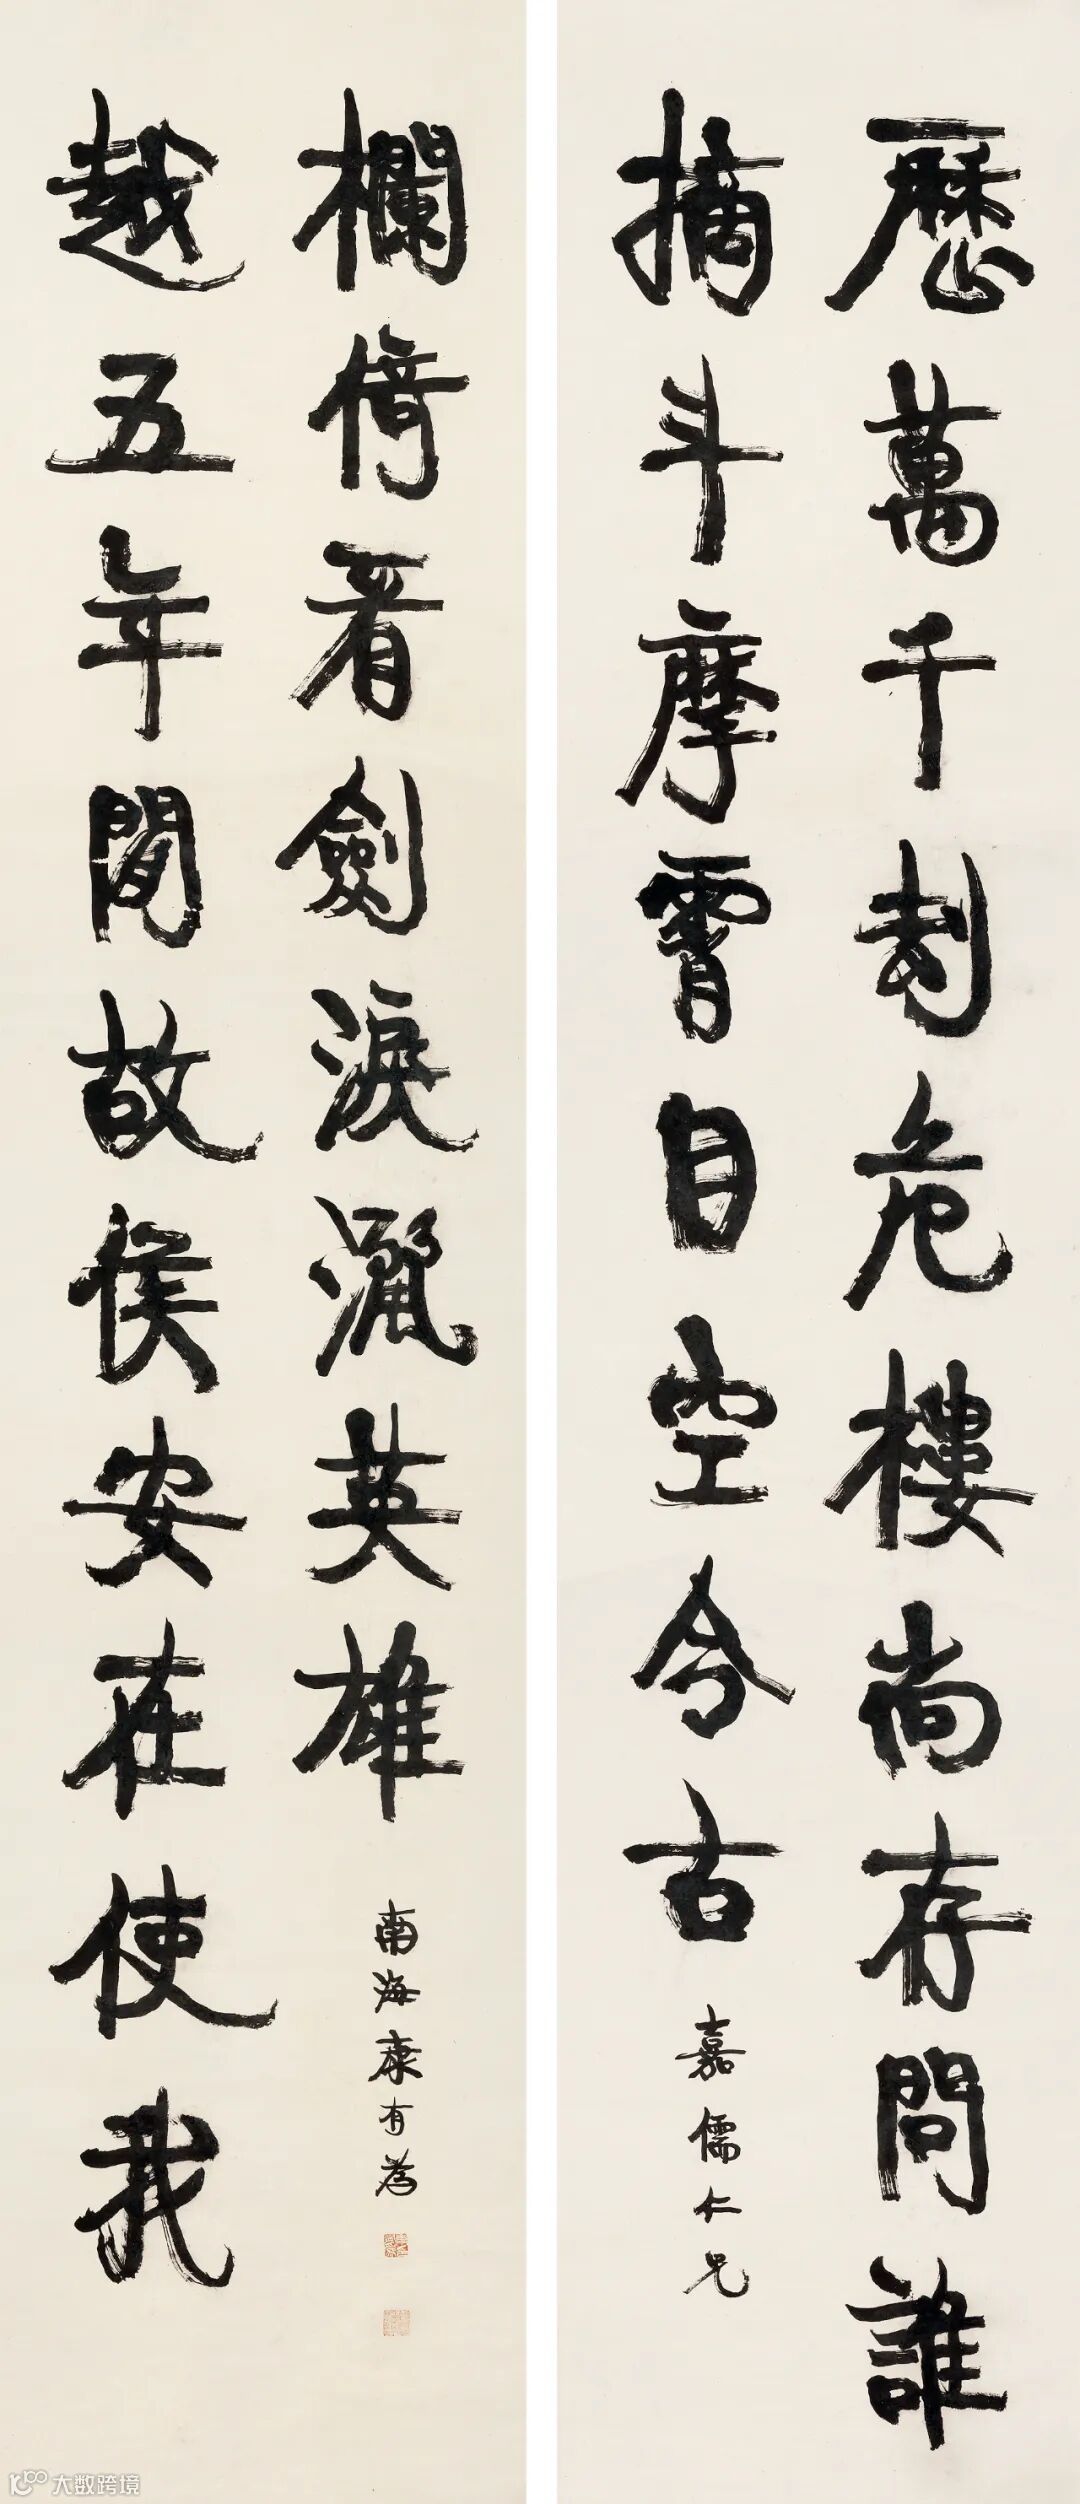 歷萬千劫危樓尚存問誰
摘斗摩霄目空今古
嘉儒仁兄
越五年間故侯安在使我
欄倚看劍淚灑英雄
南海康有為
大数跨境